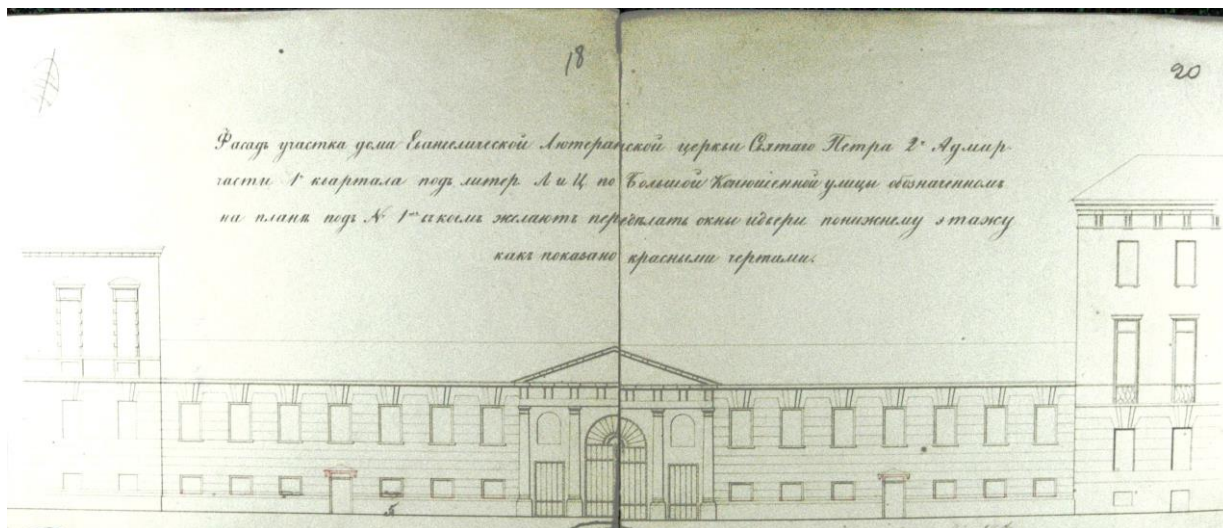 18
20
Фасадъ участка дома Евангелической Лютеранской церкви Святаго Петра 2й Адмир-
части 1го квартала подъ литер Л и Ц по Большой Конюшенной улицы обозначенномъ
на планѣ подъ № 1мъ въ коемъ желаютъ передѣлать окны и двери по нижнему этажу
какъ показано красными чертами.
5